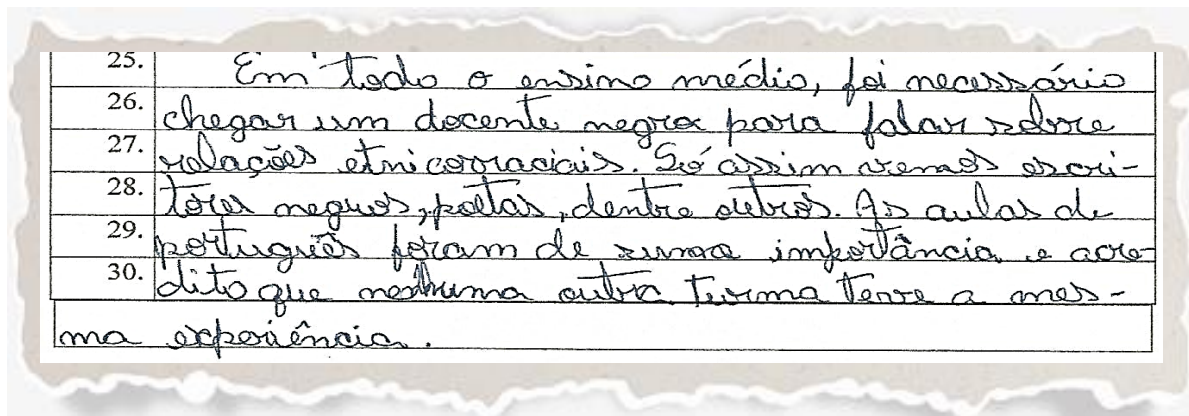 25. Em todo o ensino médio, foi necessário
26. chegar um docente negro para falar sobre
27. relações etnicorraciais. Só assim vemos escri-
28. tores negros, poetas, dentre outros. As aulas de
29. português foram de suma importância e acre-
30. dito que nenhuma outra turma teve a mes-
ma experiência.